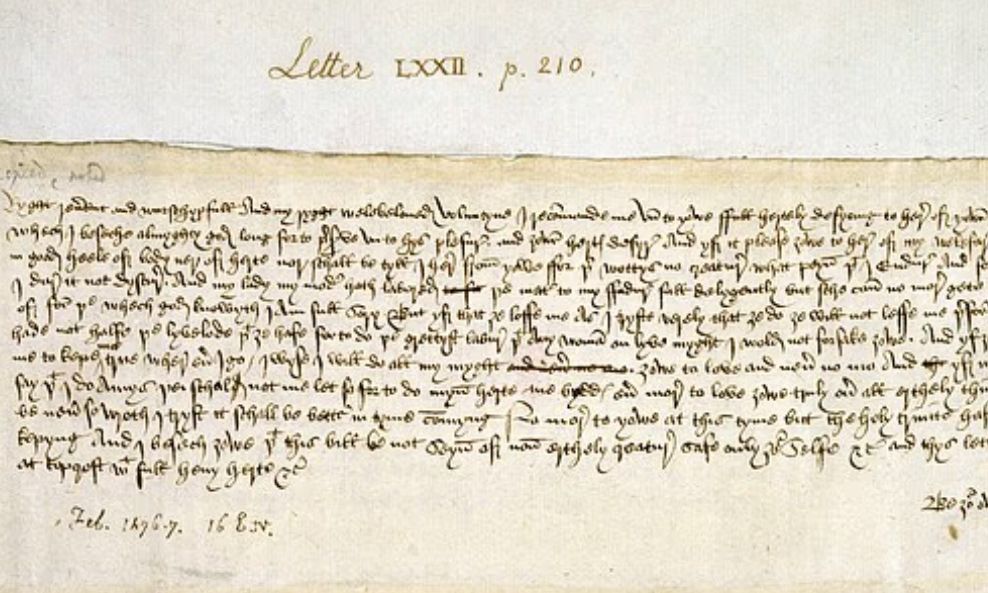 Letter LXXII. p. 210.
Ryght reu'ent and wurschypfull And my ryght welebeloued Voluntyne I recomande me vn to yowe ffull hertely desyring to her' off yowr'
whech I beseche almyghty god long for to p'serve vn to hys plesur' and yowr' hertys desyr' And yf it please yowe to her' off my welefar'
in good heele off body ner off herte nor schall be tyll I her' from yowe ffor þr wottys no creatur' what peyn þt I endur' And for
I dar' it not dyscur' And my lady my moder hath labored þe mater to my ffadur' full delygently but sche can no mor' gete
off for þe whech god knowyth I am full sory But yf that ye loffe me As I tryste verely that ye do ye will not leffe me þ'for
hade not halfe þe lyvelode þt ye hafe for to do þe grettyst labur' þt any woman on lyve myght I wold not forsake yowe And yf ye
me to kepe me true wher eu' I go I wyse I will do all my myght yowe to love and neu' no mo And yf my
say þt I do Amys þei schal not me let so for to do myn herte me bydds eu' mor' to love yowe truly ou' all erthely thing
be neu' so wroth I tryst it schall be bettr in tyme comyng No mor' to yowe at this tyme but the holy trinite hafe
kepyng And I besech yowe þt this bill be not seyn off non erthely creatur' safe only yor selfe &c And thys lettr
at topcroft wt full hevy herte &c
Be yor
Feb. 1476-7. 16 E. IV.